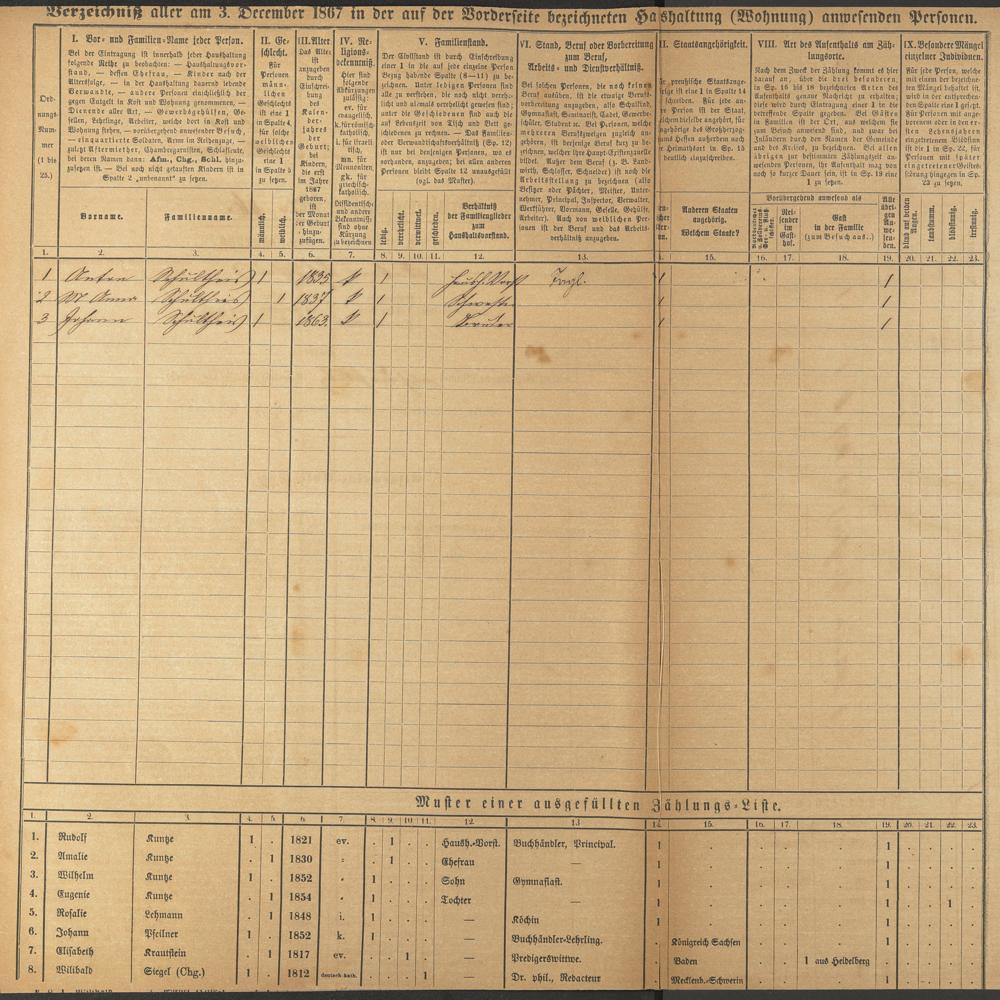 Verzeichniß aller am 3. December 1867 in der auf der Vorderseite bezeichneten Haushaltung (Wohnung) anwesenden Personen.
Ord-
nungs-
Num-
mer
(1 bis
25.)
I. Vor- und Familien-Name jeder Person.
Bei der Eintragung ist innerhalb jeder Haushaltung
folgende Reihe zu beobachten: — Haushaltungsvor-
stand, — dessen Ehefrau, — Kinder nach der
Altersfolge, — in der Haushaltung dauernd lebende
Verwandte, — andere Personen einschließlich der
gegen Entgelt in Kost und Wohnung genommenen, —
Dienende aller Art, — Gewerbsgehülfen, Ge-
sellen, Lehrlinge, Arbeiter, welche dort in Kost und
Wohnung stehen, — vorübergehend anwesender Besuch,
— einquartierte Soldaten, Arme im Reihenzuge, —
zuletzt Aftermiether, Chambregarnisten, Schlafleute,
bei deren Namen dann: Afm., Chg., Schl. hinzu-
zusetzen ist. — Bei noch nicht getauften Kindern ist in
Spalte 2 „unbenannt" zu setzen.
Vorname. Familienname.
II. Ge-
schlecht.
Für
Personen
männ-
lichen
Geschlechts
ist eine 1
in Spalte 4,
für solche
weiblichen
Geschlechts
eine 1
in Spalte 5
zu setzen.
männlich. weiblich.
III. Alter.
Das Alter
ist
anzugeben
durch
Einschrei-
bung
des
Kalen-
der-
jahres
der
Geburt;
bei
Kindern,
die erst
im Jahre
1867
geboren,
ist
der Monat
der Geburt
hinzu-
zufügen.
IV. Re-
ligions-
bekenntniß.
Hier sind
folgende
Abkürzungen
zulässig:
ev. für
evangelisch,
k. für römisch-
katholisch,
i. für israeli-
tisch,
mn. für
Mennoniten,
gk. für
griechisch-
katholisch.
Dissidenti-
sche und andere
Bekenntnisse
sind ohne
Kürzung
zu bezeichnen
V. Familienstand.
Der Civilstand ist durch Einschreibung
einer 1 in die auf jede einzelne Person
Bezug habende Spalte (8—11) zu be-
zeichnen. Unter ledigen Personen sind
alle zu verstehen, die noch nicht verehe-
licht und niemals verehelicht gewesen sind;
unter die Geschiedenen sind auch die
auf Lebenszeit von Tisch und Bett ge-
schiedenen zu rechnen. — Das Familien-
oder Verwandtschaftsverhältniß (Sp. 12)
ist nur bei denjenigen Personen, wo es
vorhanden, anzugeben; bei allen anderen
Personen bleibt Spalte 12 unausgefüllt
(vgl. das Muster).
ledig. verehelicht. verwittwet. geschieden.
Verhältniß
der Familienglieder
zum
Haushaltsvorstand.
VI. Stand, Beruf oder Vorbereitung
zum Beruf,
Arbeits- und Dienstverhältniß.
Bei solchen Personen, die noch keinen
Beruf ausüben, ist die etwaige Berufs-
vorbereitung anzugeben, also Schulkind,
Gymnasiast, Seminarist, Cadet, Gewerbe-
schüler, Student ꝛc. Bei Personen, welche
mehreren Berufszweigen zugleich an-
gehören, ist derjenige Beruf kurz zu be-
zeichnen, welcher ihre Haupt-Existenzquelle
bildet. Außer dem Beruf (z. B. Land-
wirth, Schlosser, Schneider) ist noch die
Arbeitsstellung zu bezeichnen (also
Besitzer oder Pächter, Meister, Unter-
nehmer, Principal, Inspector, Verwalter,
Werkführer, Vormann, Geselle, Gehülfe,
Arbeiter). Auch von weiblichen Per-
sonen ist der Beruf und das Arbeits-
verhältniß anzugeben.
II. Staatsangehörigkeit.
Anderen Staaten
angehörig.
Welchem Staate?
VIII. Art des Aufenthalts am Zäh-
lungsorte.
Nach dem Zweck der Zählung kommt es hier
darauf an, über die drei besonderen,
in Sp. 16 bis 18 bezeichneten Arten des
Aufenthalts genaue Nachricht zu erhalten;
diese wird durch Eintragung einer 1 in die
betreffende Spalte gegeben. Bei Gästen
in Familien ist der Ort, aus welchem sie
zum Besuch anwesend sind, und zwar bei
Inländern durch den Namen der Gemeinde
und des Kreises, zu bezeichnen. Bei allen
übrigen zur bestimmten Zählungszeit an-
wesenden Personen, ihr Aufenthalt mag von
noch so kurzer Dauer sein, ist in Sp. 19 eine
1 zu setzen.
Vorübergehend anwesend als
Rei-
sender
im
Gast-
hof.
Gast
in der Familie
(zum Besuch aus..)
Alle
übri-
gen
An-
we-
sen-
den.
IX. Besondere Mängel
einzelner Individuen.
Für jede Person, welche
mit einem der bezeich-
neten Mängel behaftet ist,
wird in der entsprechen-
den Spalte eine 1 gesetzt.
Für Personen mit ange-
borenem oder in den er-
sten Lebensjahren
eingetretenem Blödsinn
ist die 1 in Sp. 22, für
Personen mit später
eingetretener Geistes-
störung hingegen in Sp.
23 zu setzen.
blind auf beiden Augen. taubstumm. blödsinnig. irrsinnig.
1. 2. 4. 5. 6. 7. 8. 9. 10. 11. 12. 13. 15. 16. 17. 18. 19. 20. 21. 22. 23.
1 Anton Schultheis 1 1835 k 1 Haush. Vorst Tagl. 1 1
2 M Anna Schultheis 1 1837 k 1 Schwester 1 1
3 Johann Schultheis 1 1863 k 1 Bruder 1 1
Muster einer ausgefüllten Zählungs-Liste.
1. 2. 3. 4. 5. 6 7. 8. 9. 10. 11. 12. 13 14. 15. 16. 17. 18. 19. 20. 21. 22. 23.
1. Rudolf Kuntze 1 . 1821 ev. . 1 . . Haush.-Vorst. Buchhändler, Principal. 1 . . . . 1 . . . .
2. Amalie Kuntze . 1 1830 „ . 1 . . Ehefrau — 1 . . . . 1 . . . .
3. Wilhelm Kuntze 1 . 1852 „ 1 . . . Sohn Gymnasiast. 1 . . . . 1 . . . .
4. Eugenie Kuntze . 1 1854 „ 1 . . . Tochter — 1 . . . . 1 . . 1 .
5. Rosalie Lehmann . 1 1848 i. 1 . . . — Köchin 1 . . . . 1 . . . .
6. Johann Pfeilner 1 . 1852 k. 1 . . . — Buchhändler-Lehrling. . Königreich Sachsen . . . 1 . . . .
7. Elisabeth Krautstein . 1 1817 ev. . . 1 . — Predigerswittwe. . Baden . . 1 aus Heidelberg . . . . .
8. Wilibald Siegel (Chg.) 1 . 1812 deutsch-kath. . . . 1 — Dr. phil., Redacteur . Mecklenb.-Schwerin . . . 1 . . . .